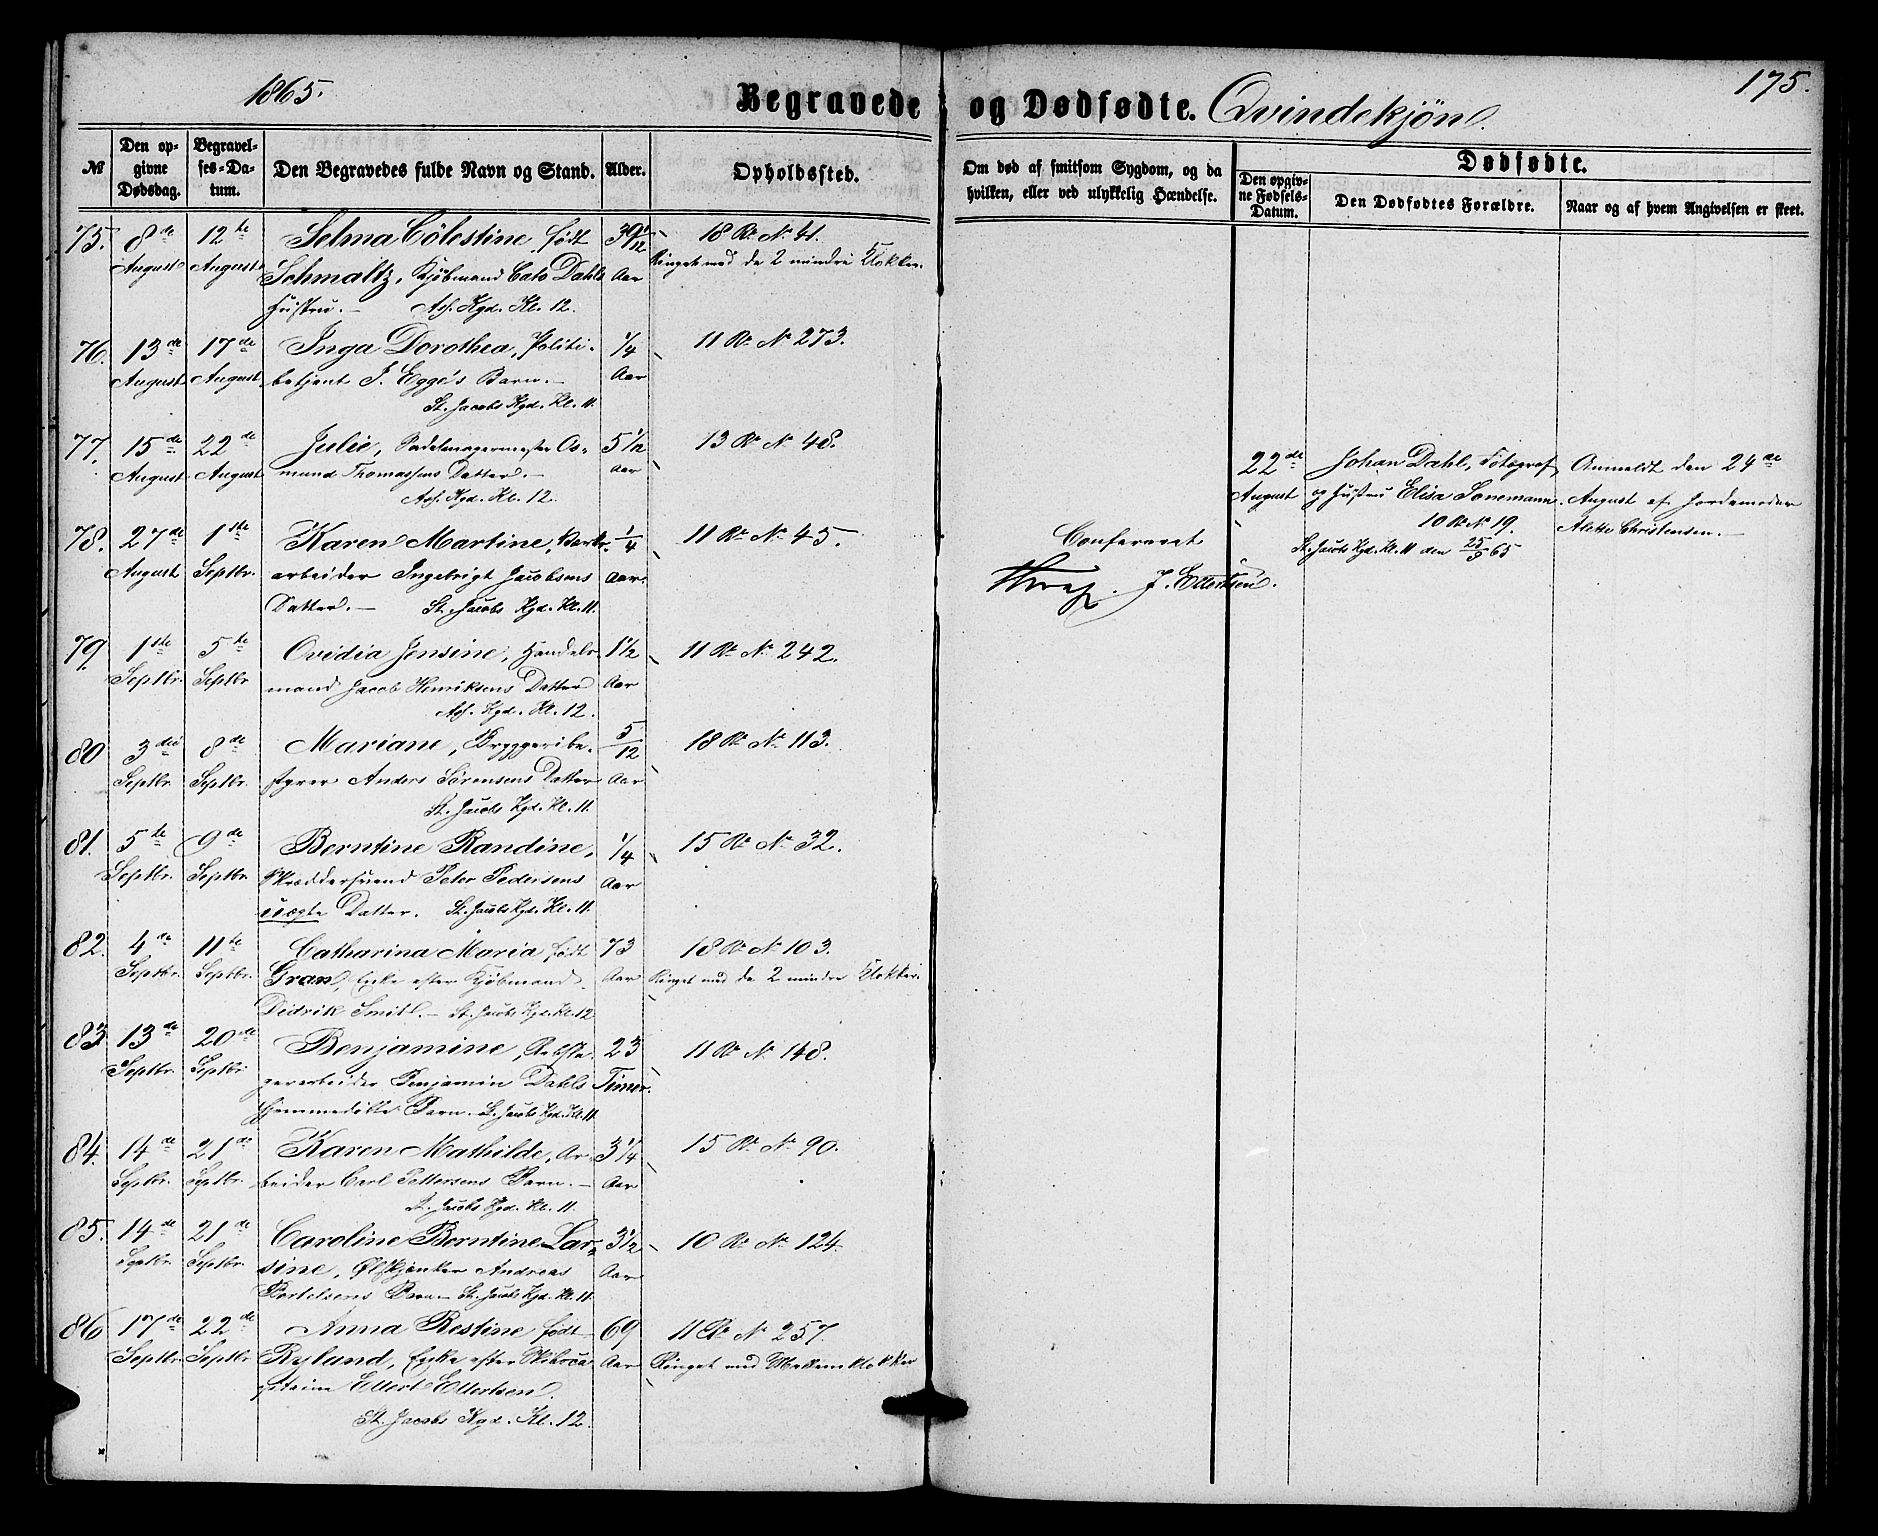 1865.
175.
Begravede og Dødfødte. Qvindekjøn.
№
Den opgivne Dødsdag.
Begravelses-Datum.
Den Begravedes fulde Navn og Stand.
Alder.
Opholdssted.
Om død af smitsom Sygdom, og da
hvilken, eller ved ulykkelig Hændelse.
Dødfødte.
Den opgivne Fødsels-Datum.
Den Dødfødtes Forældre.
Naar og af hvem Angivelsen er skeet.
75. 8de 12te Selma Cölestine, født 18 R. № 41.
August August Schmaltz, Kjøbmand Cato Dahls Aar Ringet med de 2 mindre Klokker.
Hustru. – Ass. Kgd. Kl. 12.
76. 13de 17de Inga Dorothea, Politi- 1/4 11 R. № 273.
August August betjent J. Egge's Barn. – Aar
St. Jacobs Kgd. Kl. 11.
77. 15de 22de Julie, Sadelmagermester Os- 5 1/2 13 R. № 48.
August August mund Thomassens Datter. – Aar
Ass. Kgd. Kl. 12.
78. 27de 1ste Karen Martine, 1/4 11 R. № 45.
August Septbr. arbeider Ingebrigt Jacobsens Aar.
Datter. – St. Jacobs Kgd. Kl. 11.
79. 1ste 5te Ovidia Jensine, Handels- 1 1/2 11 R. № 242.
Septbr. Septbr mand Jacob Henriksens Datter Aar
Ass. Kgd. Kl. 12.
80 3die 8de Mariane, Bryggeribe- 5/12 18 R. № 113.
Septbr. Septbr. styrer Anders Sörensens Datter Aar
St. Jacobs Kgd. Kl. 11.
81. 5te 9de Berntine Randine, 1/4 15 R. № 32.
Septbr. Septbr. Skræddersvend Peter Pedersens Aar
uægte Datter. St. Jacobs Kgd. Kl. 11.
82. 4de 11te Catharina Maria, født 73 18 R. № 103.
Septbr. Septbr. Gran, Enke efter Kjöbmand Aar Ringet med de 2 mindre Klokker.
Didrik Smit. – St. Jacobs Kgd. Kl. 12
83 13de 20de Benjamine, Rebsla- 23 11 R. № 148.
Septbr. Septbr gerarbeider Benjamin Dahls Timer.
hjemmedöbte Barn. St. Jacobs Kgd. Kl. 11
84. 14de 21de Karen Mathilde, Ar- 3 1/4 15 R. № 90.
Septbr. Septbr. beider Carl Pettersens Barn. – Aar
St. Jacobs Kgd. Kl. 11.
85. 14de 21de Caroline Berntine Lar- 3 1/2 10 R. № 124.
Septbr. Septbr. sine, Ølskjænker Andreas Aar
Bertelsens Barn – St. Jacobs Kgd. Kl. 11.
86 17de 22de Anna Restine, født 69 11 R. № 257.
Septbr. Septbr Rylund, Enke efter Skibsca- Aar Ringet med Mellemklokker
pitain Ellert Ellertsen.
St. Jacobs Kgd. Kl. 12.
22de Johan Dahl, Fotograf Anmeldt den 24de
August og Hustru Elisa Sonemann August af Jordemoder
10 R. № 19. Alette Christensen. –
St. Jacobs Kgd. Kl. 11 den 25/8 65
Confereret
J. Ellertsen.